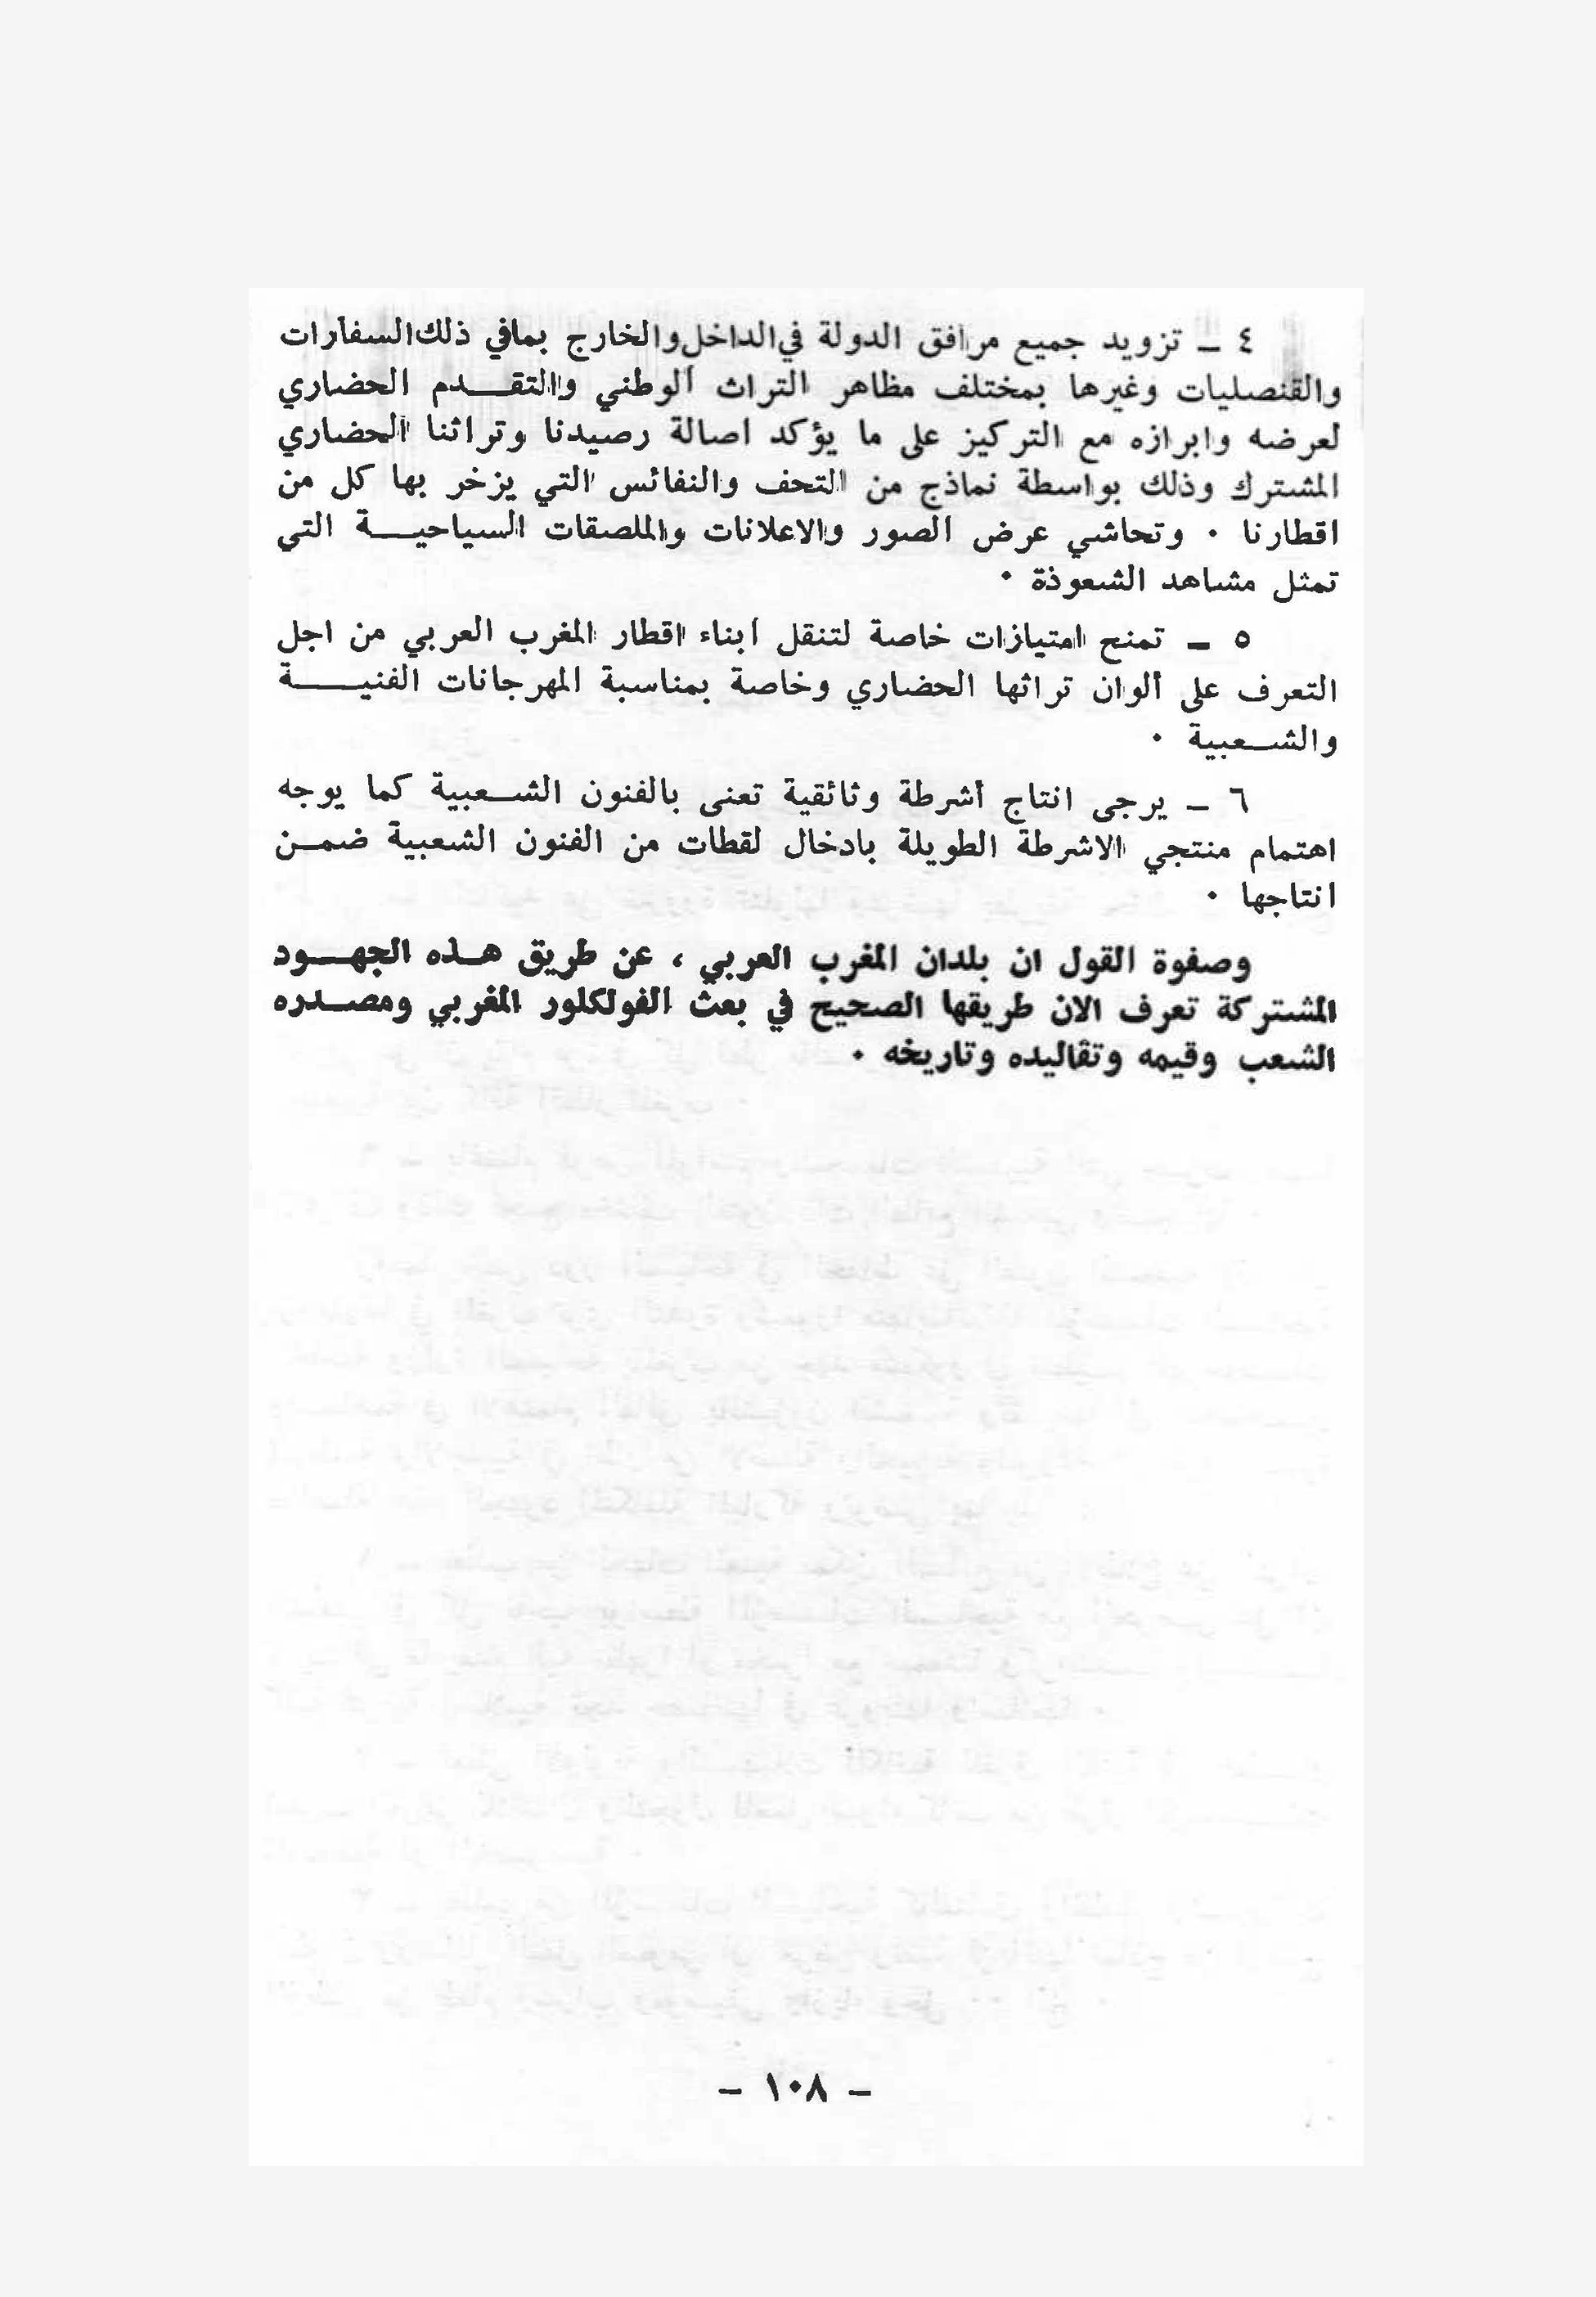 ٤ ــ تزويد جميع مرافق الدولة في الداخل والخارج بمافي ذلك السفارات
والقنصليات وغيرها بمختلف مظاهر التراث الوطني والتقــدم الحضاري
لعرضه وابرازه مع التركيز على ما يؤكد اصالة رصيدنا وتراثنا الحضاري
المشترك وذلك بواسطة نماذج من التحف والنفائس التي يزخر بها كل من
اقطارنا ٠ وتحاشي عرض الصور والاعلانات والملصقات السياحيــة التي
تمثل مشاهد الشعوذة ٠
٥ ــ تمنح امتيازات خاصة لتنقل أبناء اقطار المغرب العربي من اجل
التعرف على ألوان تراثها الحضاري وخاصة بمناسبة المهرجانات الفنيــــة
والشــعبية ٠
٦ ــ يرجى انتاج أشرطة وثائقية تعنى بالفنون الشــعبية كما يوجه
اهتمام منتجي الاشرطة الطويلة بادخال لقطات من الفنون الشعبية ضمــن
انتاجها ٠
وصفوة القول ان بلدان المغرب العربي ، عن طريق هــذه الجهــود
المشتركة تعرف الان طريقها الصحيح في بعث الفولكلور المغربي ومصــدره
الشعب وقيمه وتقاليده وتاريخه ٠
– ١٠٨ –